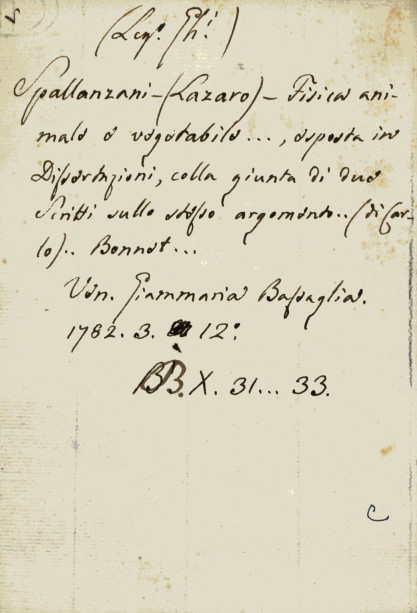 (Leg.º Gh.i)
Spallanzani - (Lazaro) - Fisica ani-
male e vegetabile..., esposta in
Dissertazioni, colla giunta di due
Scritti sullo stesso argomento.. (di Car-
lo).. Bonnet...
Ven. Giammaria Bassaglia.
1782. 3. 12º
BB. X. 31... 33.
C